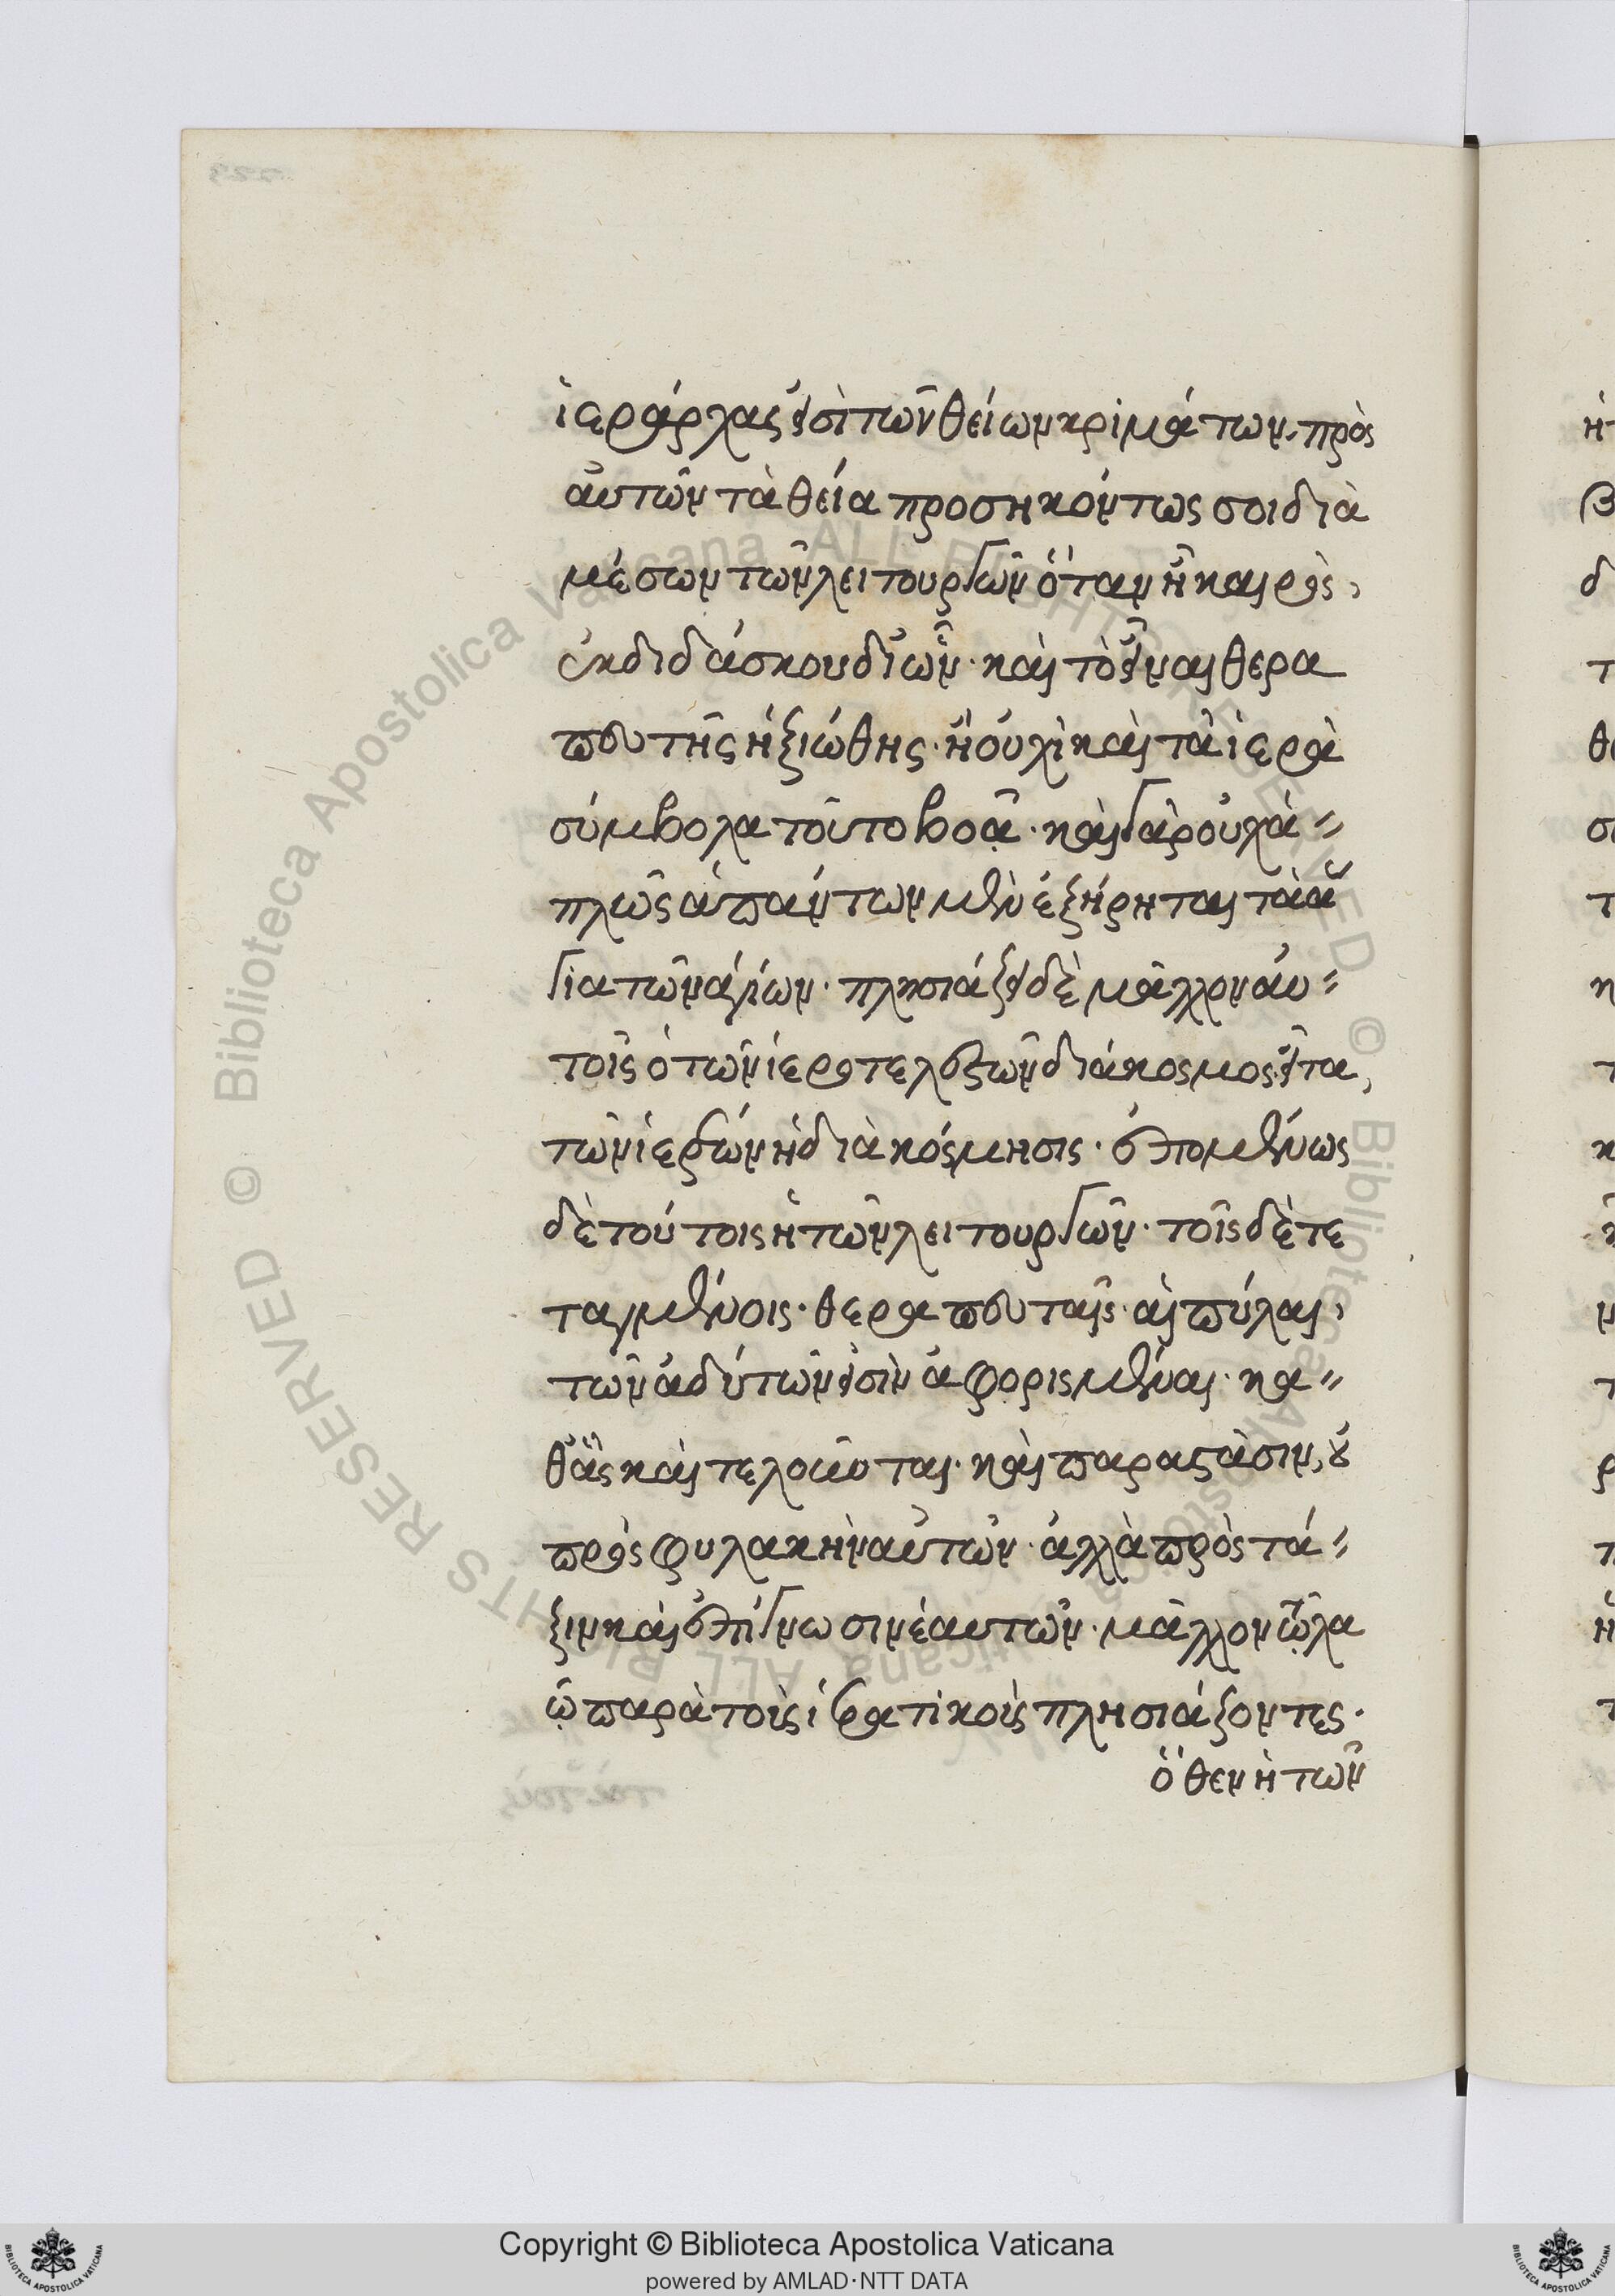 ἱεράρχας εἰσὶ τῶν θείων κριμάτων. πρὸς
αὐτῶν τὰ θεία προσηκόντως σοι διὰ
μέσων τῶν λειτουργῶν ὅταν ἦ καιρὸς,
ἐκδιδάσκου δι' ὧν· καὶ τὸ εἶναι θερα
πευτῆς ἠξιώθης· ἢ οὐχὶ καὶ τὰ ἱερὰ
σύμβολα τοῦτο βοᾶ· καὶ γὰρ οὐχ ἁ=
πλῶς ἁπάντων μὲν ἐξήρηται τὰ ἅ
για τῶν ἁγίων· πλησιάζει δὲ μᾶλλον αὐ=
τοῖς ὁ τῶν ἱεροτελεστῶν διάκοσμος· εἶτα,
τῶν ἱερέων ἡ διακόσμησις· ἑπομένως
δὲ τούτοις ἡ τῶν λειτουργῶν· τοῖς δὲ τε
ταγμένοις· θεραπευταῖς· αἱ πύλαι,
τῶν ἀδύτων εἰσὶν ἀφορισμέναι· κα=
θ' ἃς καὶ τελοῦνται· καὶ παραστᾶσιν, οὐ
πρὸς φυλακὴν αὐτῶν· ἀλλὰ πρὸς τά=
ξιν καὶ ἐπίγνωσιν ἑαυτῶν· μᾶλλον τῶ λα
ῶ παρὰ τοῖς ἱερατικοῖς πλησιάζοντες·
ὅθεν ἡ τῶν
Copyright © Biblioteca Apostolica Vaticana
powered by AMLAD·NTT DATA